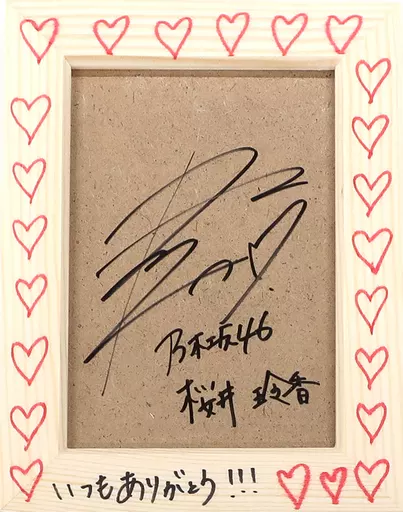 乃木坂46
桜井 玲香
いつもありがとう!!!